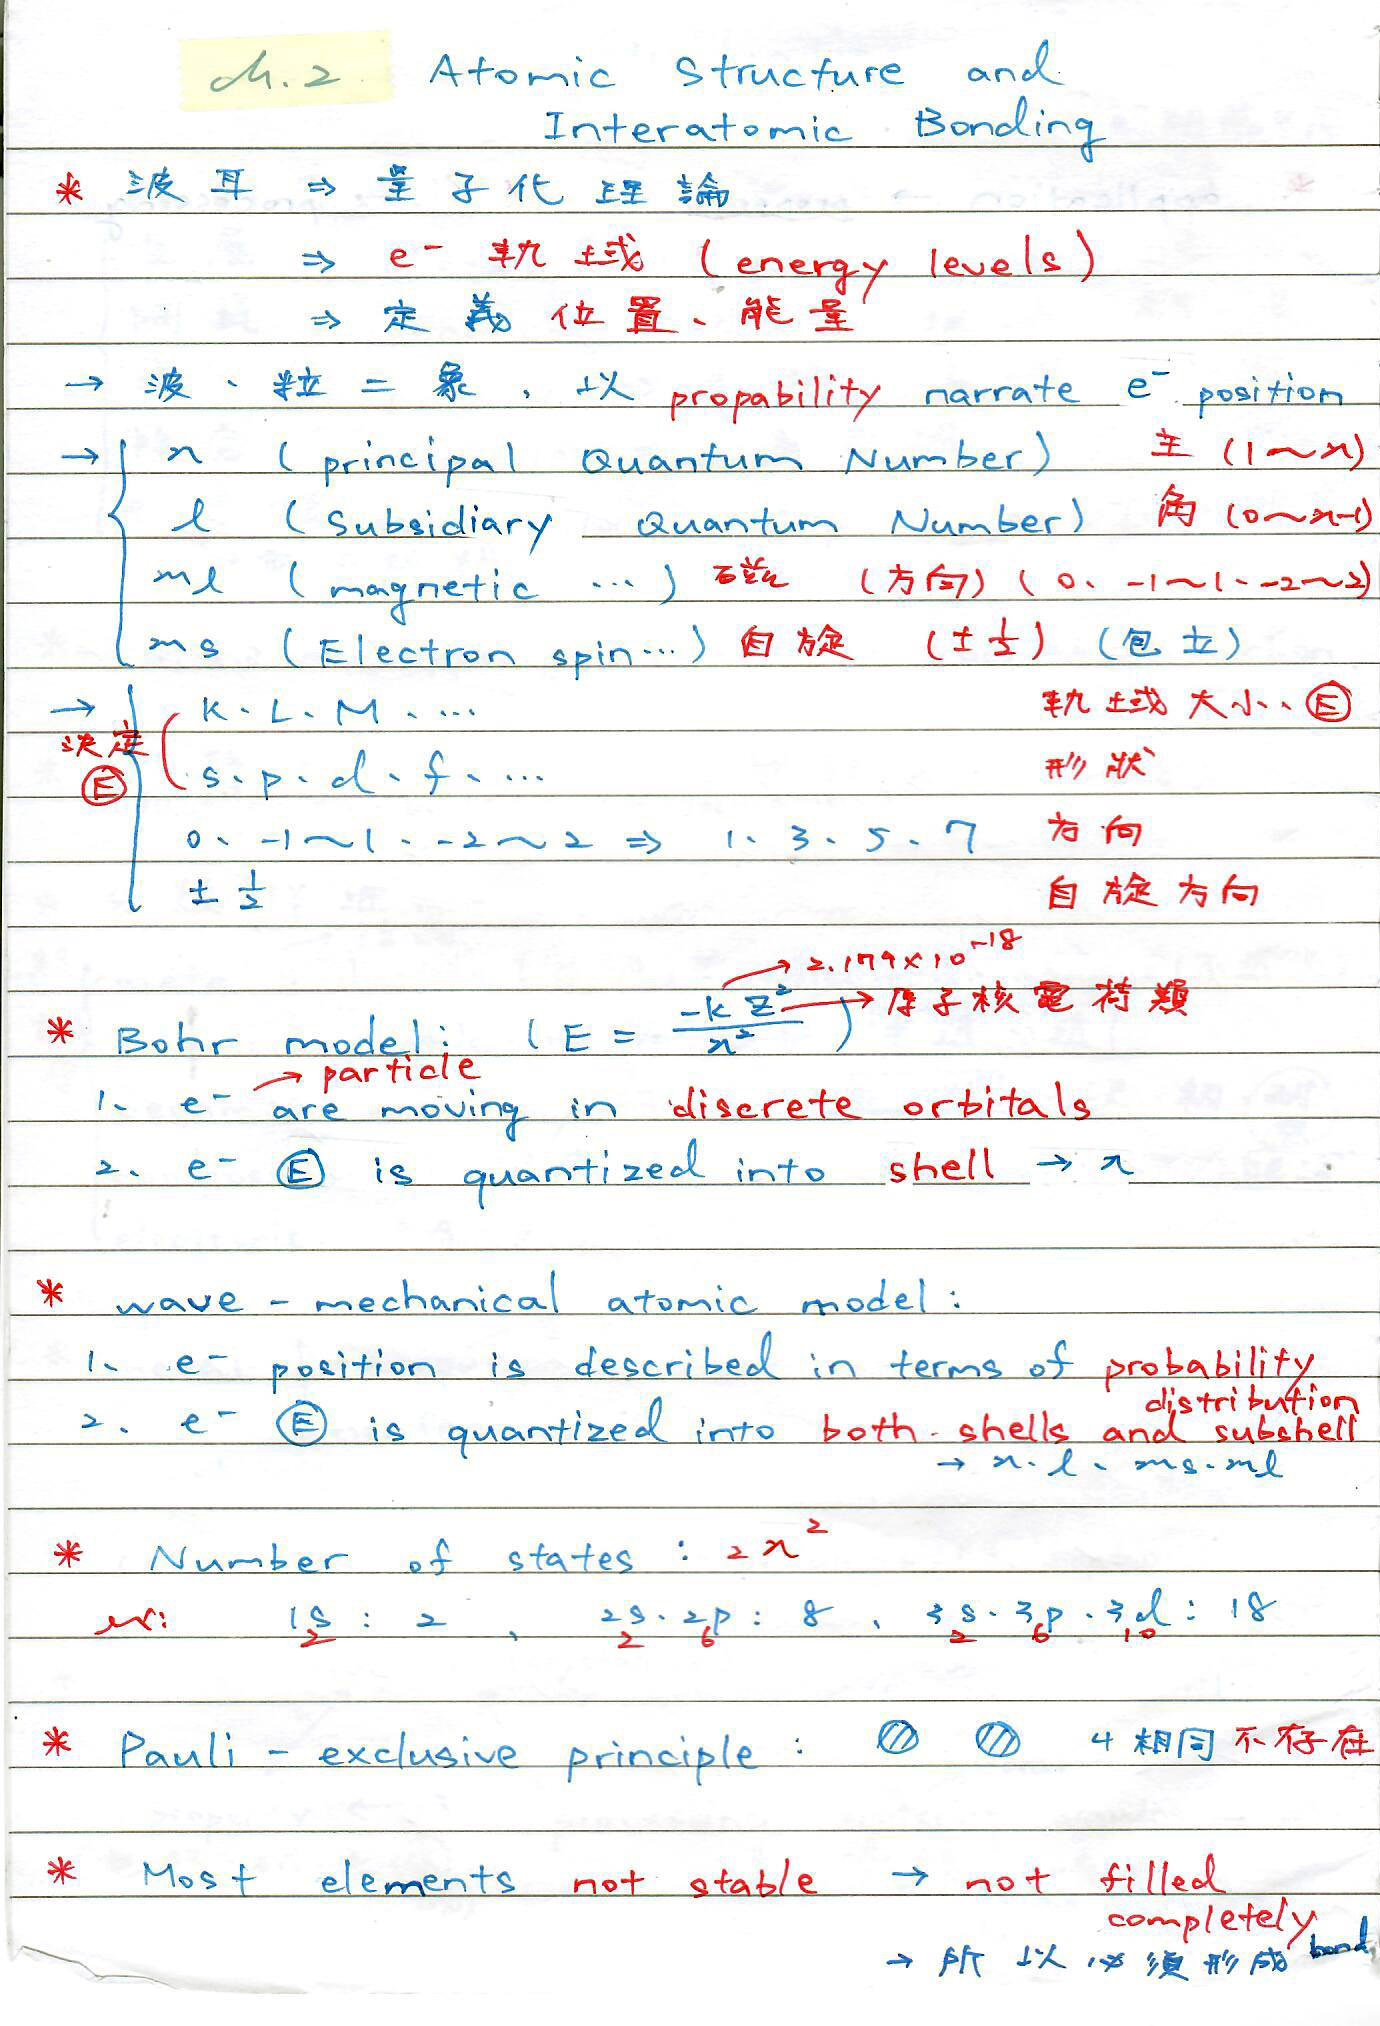 ch.2 Atomic Structure and
Interatomic Bonding
* 波耳 ⇒ 量子化理論
⇒ e⁻ 軌域 (energy levels)
⇒ 定義 位置、能量
→ 波、粒二象,以 propability narrate e⁻ position
→ n (principal Quantum Number) 主 (1~n)
l (Subsidiary Quantum Number) 角 (0~n-1)
ml (magnetic …) 磁 (方向) (0、-1~1、-2~2)
ms (Electron spin…) 自旋 (±½) (包立)
→ K、L、M、… 軌域大小、Ⓔ
決定
Ⓔ s、p、d、f、… 形狀
0、-1~1、-2~2 ⇒ 1、3、5、7 方向
±½ 自旋方向
→ 2.179×10⁻¹⁸
* Bohr model: (E = -kZ²/n²) → 原子核電荷類
→ particle
1、e⁻ are moving in discrete orbitals
2、e⁻ Ⓔ is quantized into shell → n
* wave-mechanical atomic model:
1、e⁻ position is described in terms of probability
distribution
2、e⁻ Ⓔ is quantized into both shells and subshell
→ n、l、ms、ml
* Number of states: 2n²
ex: 1s: 2 、 2s、2p: 8 、 3s、3p、3d: 18
2 2 6 2 6 10
* Pauli-exclusive principle: 4相同不存在
* Most elements not stable → not filled
completely
→ 所以必須形成 bond